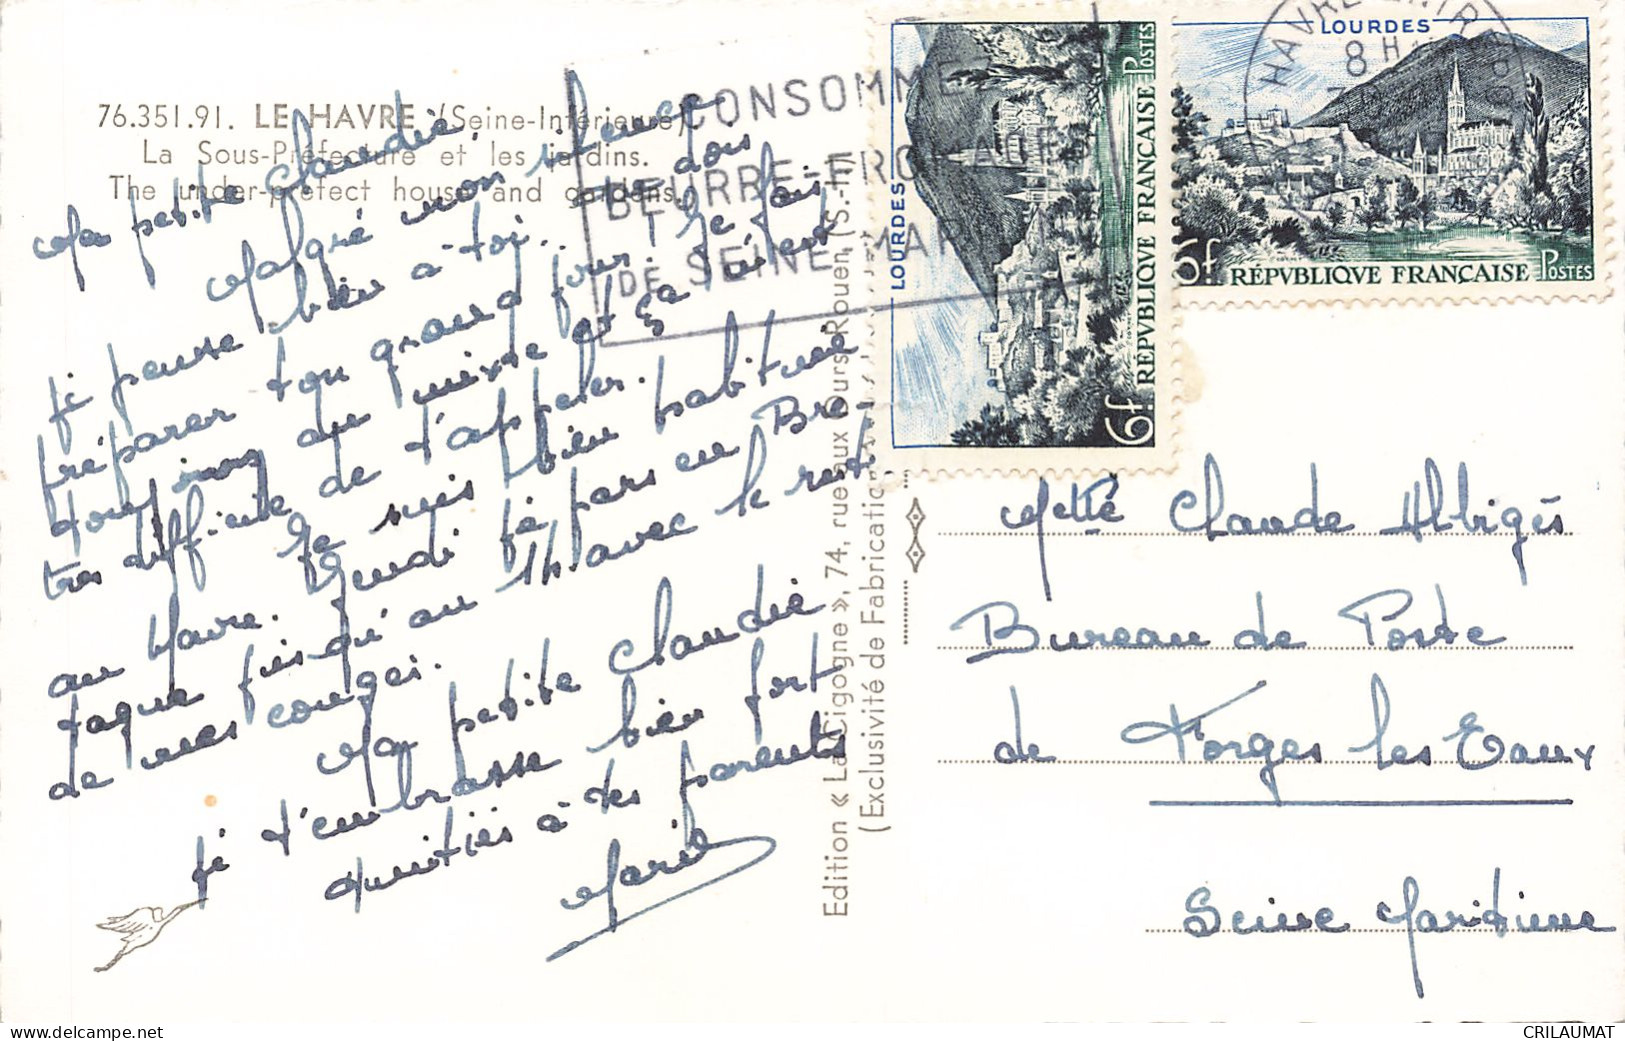 76.351.91. LE HAVRE (Seine-Inférieure)
La Sous-Préfecture et les jardins.
The under-prefect house and gardens.
Ma petite Claudie,
Malgré mon silence
je pense bien à toi. Je dois
préparer ton grand jour. Je fais
toujours du mixte et ça
très difficile de t'appeler.
Je suis bien habitué
au Havre. Jeudi je pars en Bre-
tagne jusqu'au 14 avec le reste
de mes congés.
Ma petite Claudie
je t'embrasse bien fort
Amitiés à tes parents
Marie
CONSOMMEZ
BEURRE-FROMAGE
DE SEINE-MAR
Edition « La Cigogne », 74, rue aux Ours, Rouen, (S.-I)
(Exclusivité de Fabrication
LOURDES
6f
RÉPUBLIQUE FRANÇAISE
POSTES
HAVRE
8 H
LOURDES
6f
RÉPUBLIQUE FRANÇAISE
POSTES
Melle Claude Albigès
Bureau de Poste
de Forges les Eaux
Seine Maritime
delcampe.net
CRILAUMAT